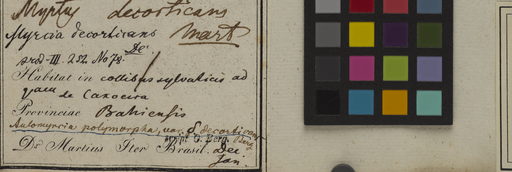 Myrtus decorticans
Myrcia decorticans Mart
De
prod. III. 252. No 78.
Habitat in collibus sylvaticis ad
de Caxoeira
Provinciae Bahiensis
Aulomyrcia polymorpha, var. δ decorticans Berg
scrips. O. Berg.
Dr Martius Iter Brasil. Dec
Jan.